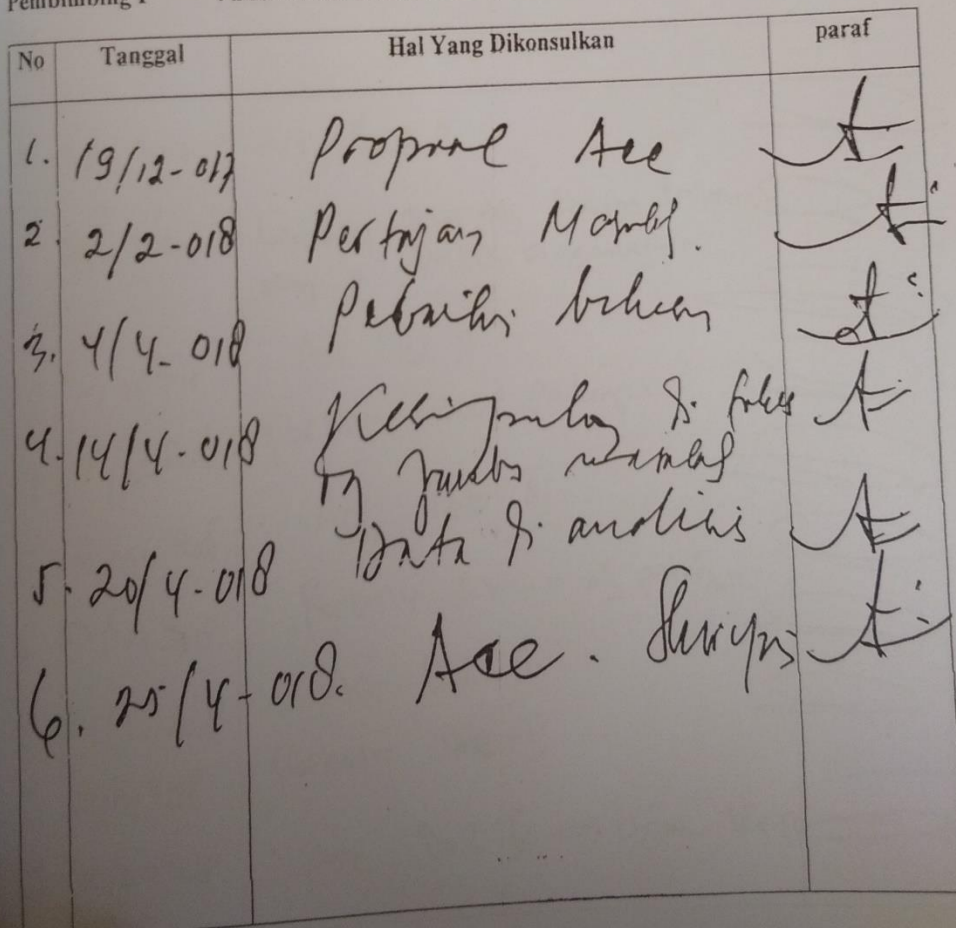 Pembimbing I
No Tanggal Hal Yang Dikonsulkan paraf
1. 19/12-017 Proposal Acc
2. 2/2-018 Pertajam
3. 4/4-018 Perbaiki
4. 14/4-018 Kesimpulan di fokus
5. 20/4-018 Data di analisis
6. 25/4-018. Acc. Skripsi